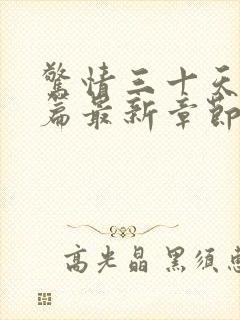 驚情三十天
篇最新章節
高光晶 黑須惠